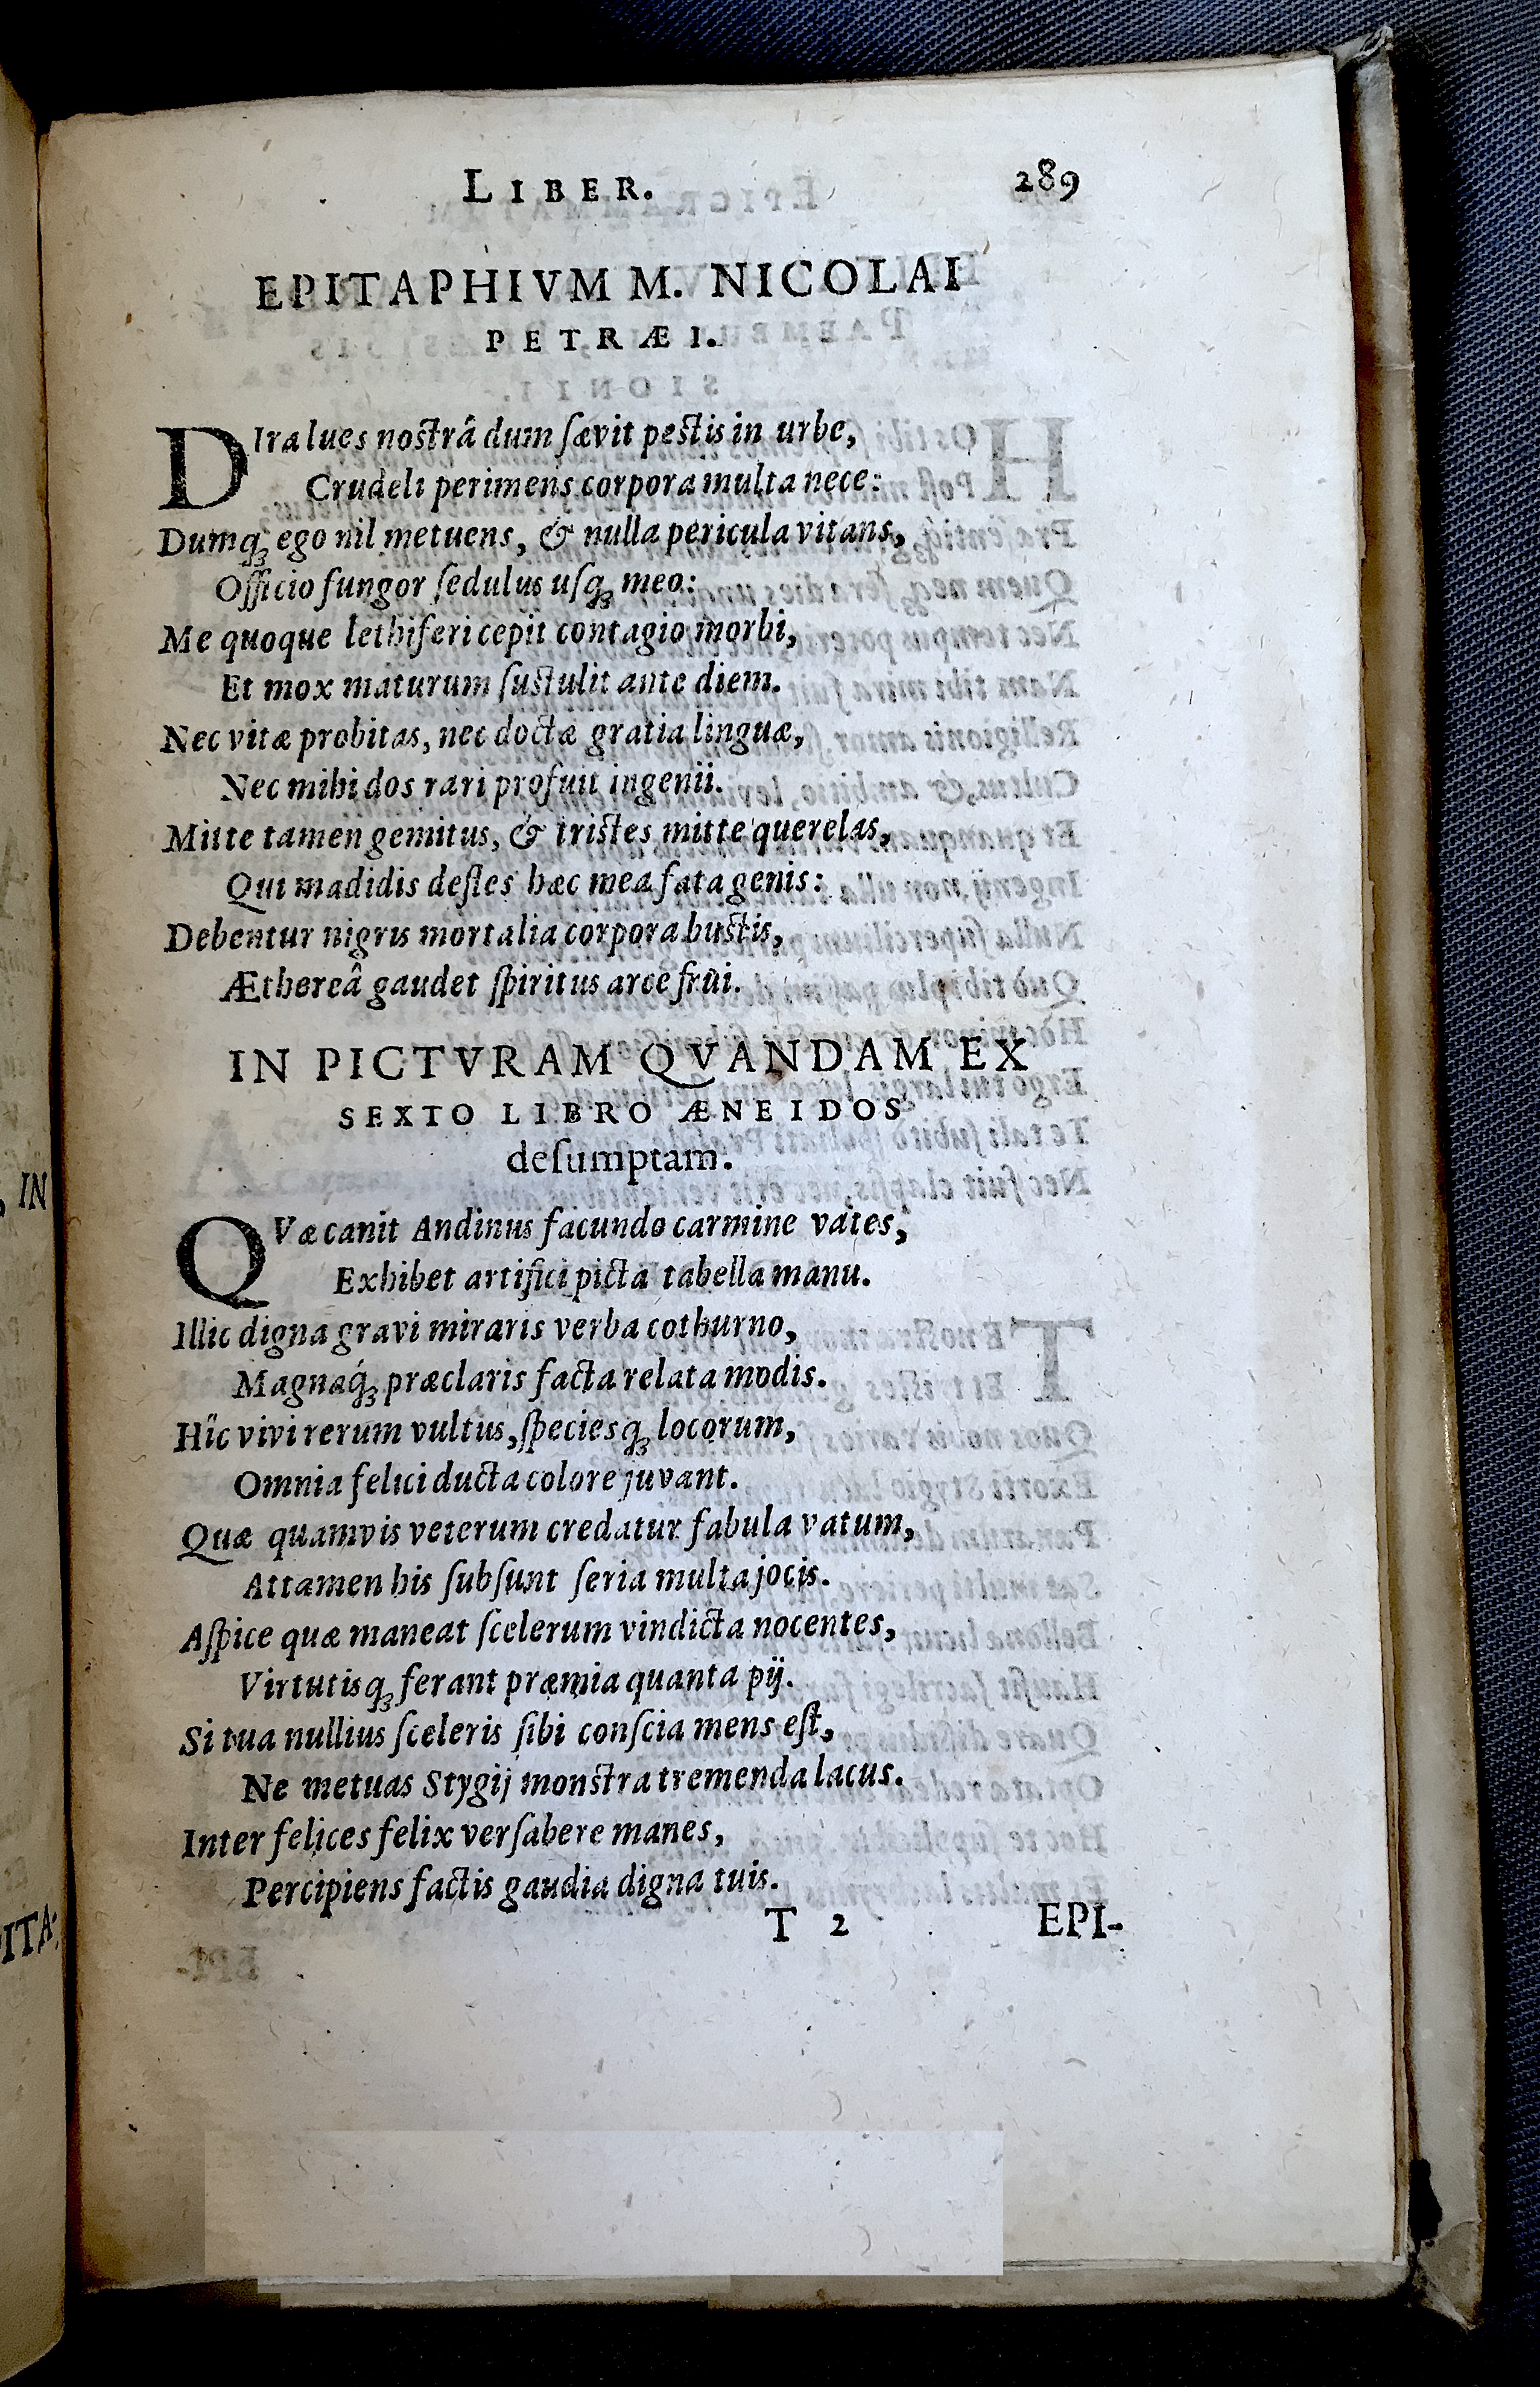 LIBER. 289
EPITAPHIVM M. NICOLAI
PETRÆI.
DIra lues nostrâ dum sævit pestis in urbe,
Crudeli perimens corpora multa nece:
Dumqꝫ ego nil metuens, & nulla pericula vitans,
Officio fungor ſedulus uſqꝫ meo:
Me quoque lethiferi cepit contagio morbi,
Et mox maturum ſustulit ante diem.
Nec vitæ probitas, nec doctæ gratia linguæ,
Nec mihi dos rari profuit ingenii.
Mitte tamen gemitus, & tristes mitte querelas,
Qui madidis defles hæc mea fata genis:
Debentur nigris mortalia corpora bustis,
Æthereâ gaudet ſpiritus arce frui.
IN PICTVRAM QVANDAM EX
SEXTO LIBRO ÆNEIDOS
deſumptam.
QVæ canit Andinus facundo carmine vates,
Exhibet artifici picta tabella manu.
Illic digna gravi miraris verba cothurno,
Magnaq́ꝫ præclaris facta relata modis.
Hîc vivi rerum vultus, ſpeciesqꝫ locorum,
Omnia felici ducta colore juvant.
Quæ quamvis veterum credatur fabula vatum,
Attamen his ſubſunt ſeria multa jocis.
Aſpice quæ maneat ſcelerum vindicta nocentes,
Virtutisqꝫ ferant præmia quanta pij.
Si tua nullius ſceleris ſibi conſcia mens eſt,
Ne metuas Stygij monstra tremenda lacus.
Inter felices felix verſabere manes,
Percipiens factis gaudia digna tuis.
T 2 EPI-
IN